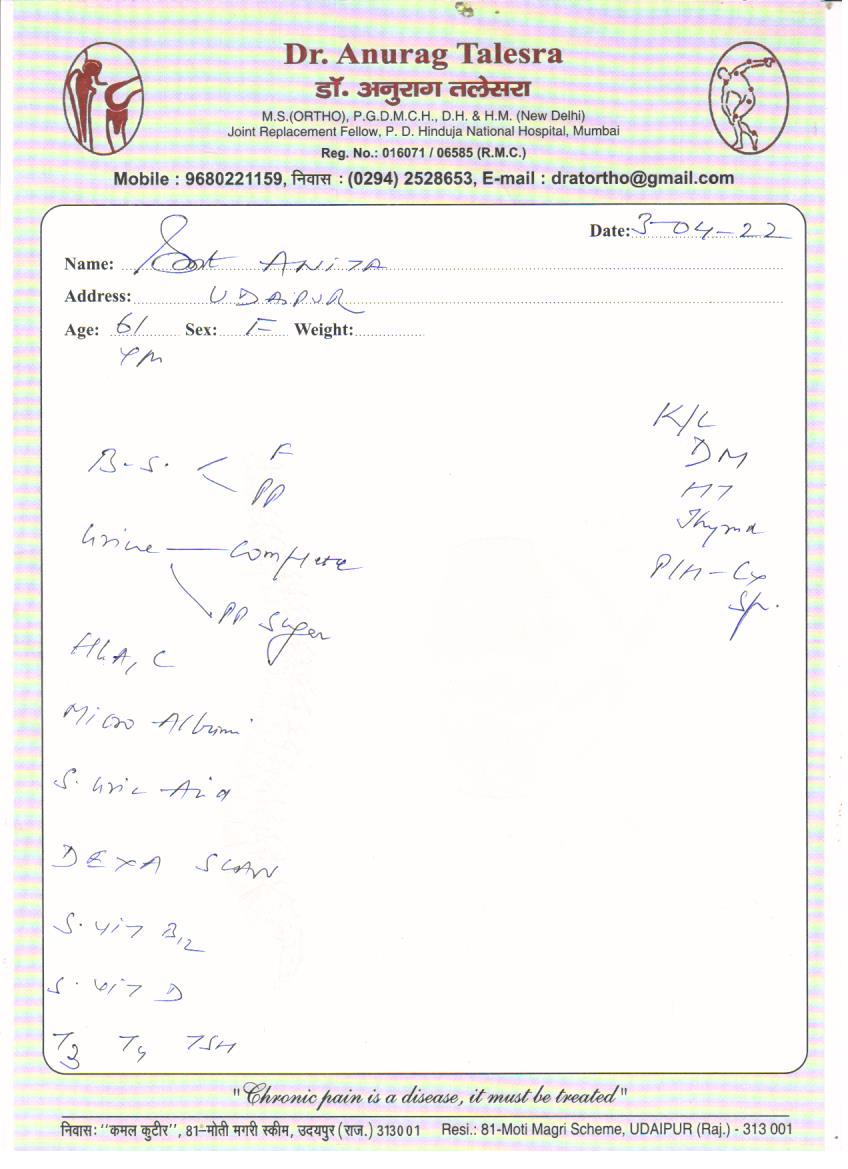 Dr. Anurag Talesra
डॉ. अनुराग तलेसरा
M.S.(ORTHO), P.G.D.M.C.H., D.H. & H.M. (New Delhi)
Joint Replacement Fellow, P. D. Hinduja National Hospital, Mumbai
Reg. No.: 016071 / 06585 (R.M.C.)
Mobile : 9680221159, निवास : (0294) 2528653, E-mail : dratortho@gmail.com
Date: 3-04-22
Name: ANITA
Address: UDAIPUR
Age: 61 Sex: F Weight:
K/C
DM
HT
B.S. F
PP
Urine Complete
PP Sugar
HbA1C
Micro Albumi
S. Uric Acid
DEXA SCAN
S. VIT B12
S. VIT D
T3 T4 TSH
"Chronic pain is a disease, it must be treated"
निवास: "कमल कुटीर", 81–मोती मगरी स्कीम, उदयपुर (राज.) 313001 Resi.: 81-Moti Magri Scheme, UDAIPUR (Raj.) - 313 001